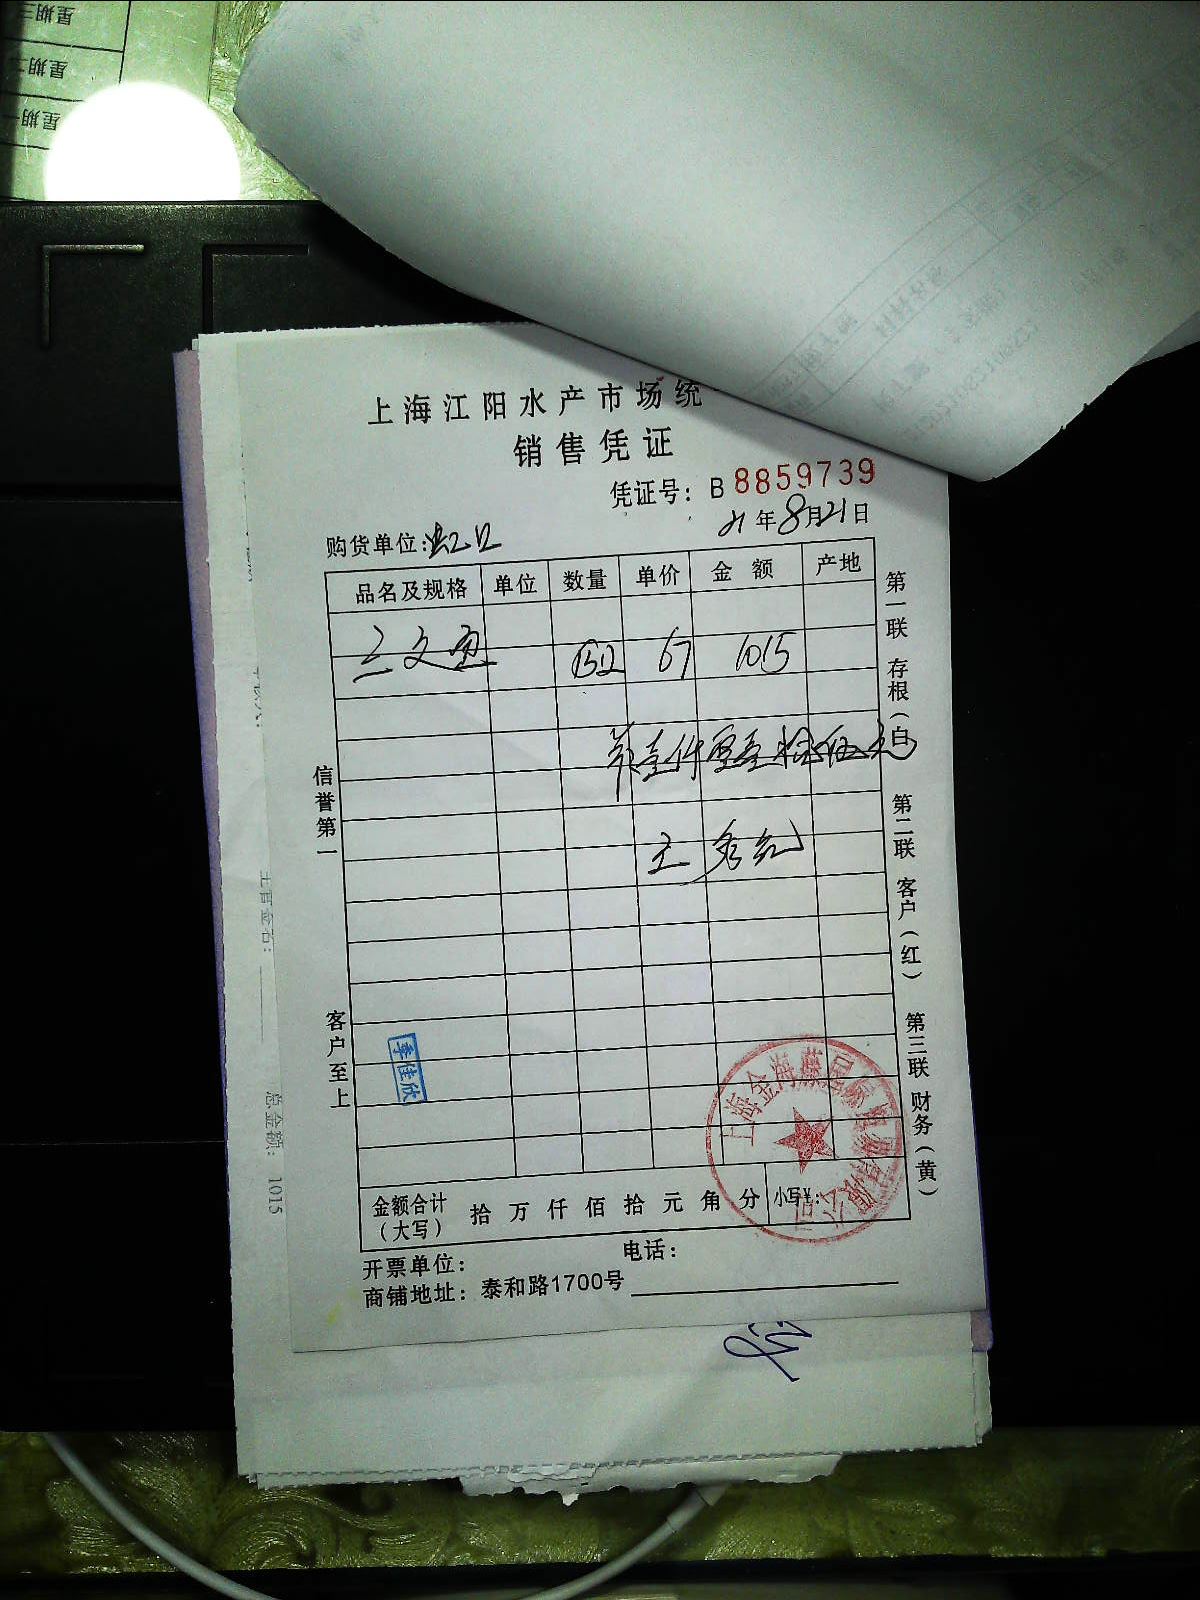 星期三
星期二
星期一
上海江阳水产市场统
销售凭证
凭证号: B 8859739
21年8月21日
购货单位:虹口
品名及规格 单位 数量 单价 金 额 产地
三文鱼 15.12 67 1015
壹仟零壹拾伍元
王
信誉第一
客户至上
第一联 存根(白)
第二联 客户(红)
第三联 财务(黄)
季佳欣
上海金海藤
公司
金额合计
(大写)
拾 万 仟 佰 拾 元 角 分 小写¥:
开票单位: 电话:
商铺地址: 泰和路1700号
主管签名:
总金额: 1015